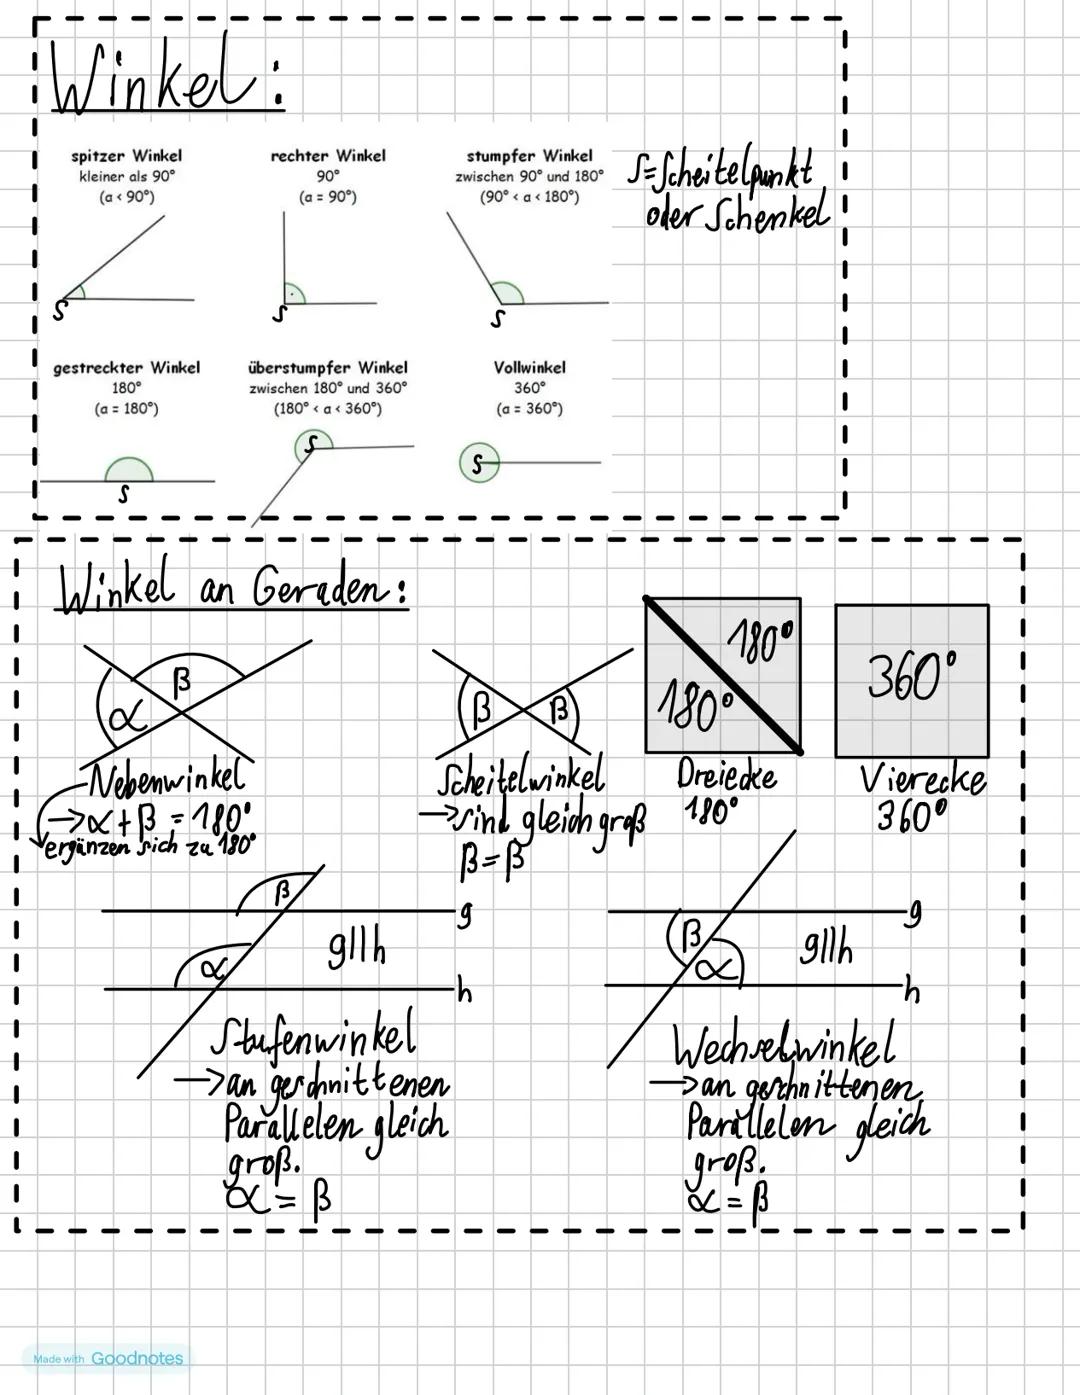 Winkel:
spitzer Winkel
kleiner als 90°
(α < 90°)
S
rechter Winkel
90°
(α = 90°)
S
stumpfer Winkel
zwischen 90° und 180°
(90° < α < 180°)
S
S=Scheitelpunkt
oder Schenkel
gestreckter Winkel
180°
(α = 180°)
S
überstumpfer Winkel
zwischen 180° und 360°
(180° < α < 360°)
S
Vollwinkel
360°
(α = 360°)
S
Winkel an Geraden:
β
α
Nebenwinkel
→α+β=180°
ergänzen sich zu 180°
β β
Scheitelwinkel
→sind gleich groß
β=β
180°
180°
Dreiecke
180°
360°
Vierecke
360°
β
g
α
g||h
h
Stufenwinkel
→an geschnittenen
Parallelen gleich
groß.
α=β
g
β
α
g||h
h
Wechselwinkel
→an geschnittenen
Parallelen gleich
groß.
α=β
Made with Goodnotes